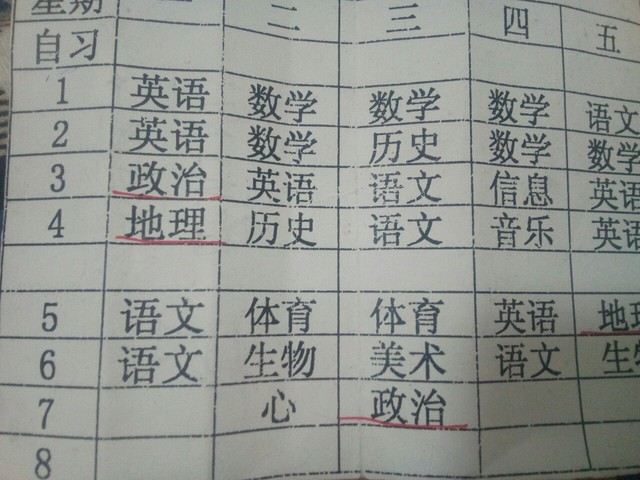 星期 一 二 三 四 五
自习
1 英语 数学 数学 数学 语文
2 英语 数学 历史 数学 数学
3 政治 英语 语文 信息 英语
4 地理 历史 语文 音乐 英语
5 语文 体育 体育 英语 地理
6 语文 生物 美术 语文 生物
7 心 政治
8